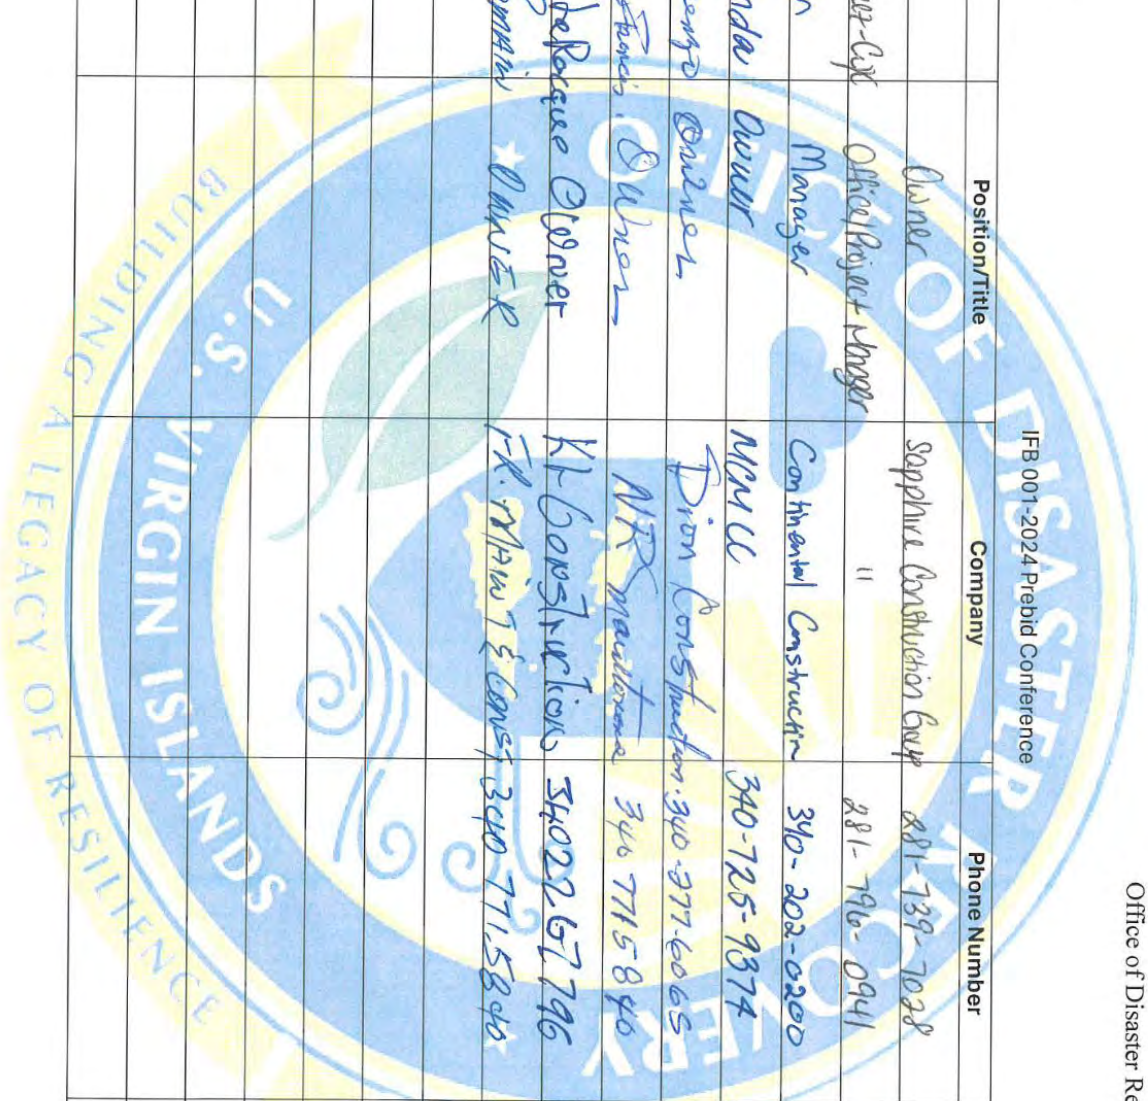 Office of Disaster Re
IFB 001-2024 Prebid Conference
Position/Title Company Phone Number
Owner Sapphire Construction Group 281-739-7028
Office/Project Manager " 281-796-0941
Manager Continental Construction 340-202-0200
nda Owner MCMCC 340-725-9374
enzo Owner Construction 340-277-6065
Francis Owner 340 7715840
LaRocque Owner Construction 3402267796
OWNER FR. MAINT & CONST 340-7715840
OFFICE OF DISASTER RECOVERY
U.S. VIRGIN ISLANDS
BUILDING A LEGACY OF RESILIENCE